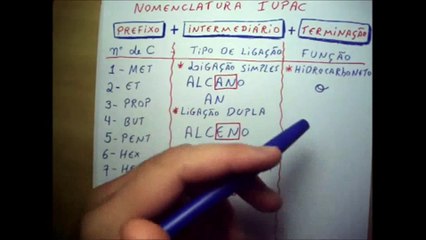 NOMENCLATURA IUPAC
PREFIXO + INTERMEDIÁRIO + TERMINAÇÃO
nº de C TIPO DE LIGAÇÃO FUNÇÃO
1 - MET * LIGAÇÃO SIMPLES * HIDROCARBONETO
2 - ET ALCANO O
3 - PROP AN
4- BUT * LIGAÇÃO DUPLA
5- PENT ALCENO
6- HEX